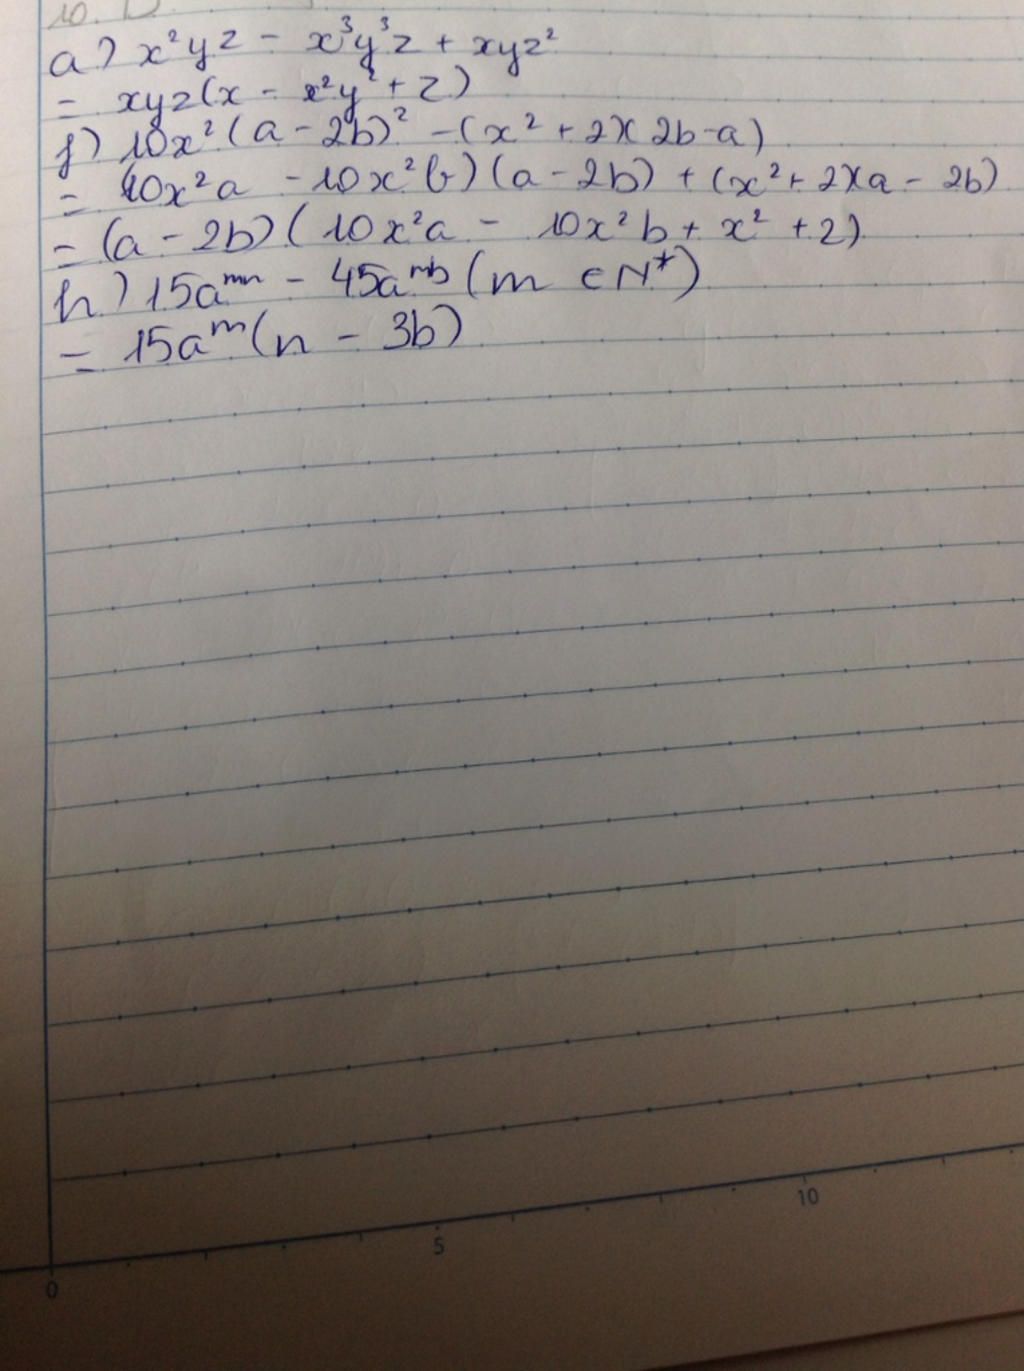 10.
a) x²yz - x³y³z + xyz²
= xyz(x - x²y² + z)
f) 10x²(a - 2b)² - (x² + 2)(2b - a)
= 10x²a - 10x²b)(a - 2b) + (x² + 2)(a - 2b)
= (a - 2b)(10x²a - 10x²b + x² + 2)
h) 15aᵐⁿ - 45aᵐᵇ (m ∈ N*)
= 15aᵐ(n - 3b)
10
5
0